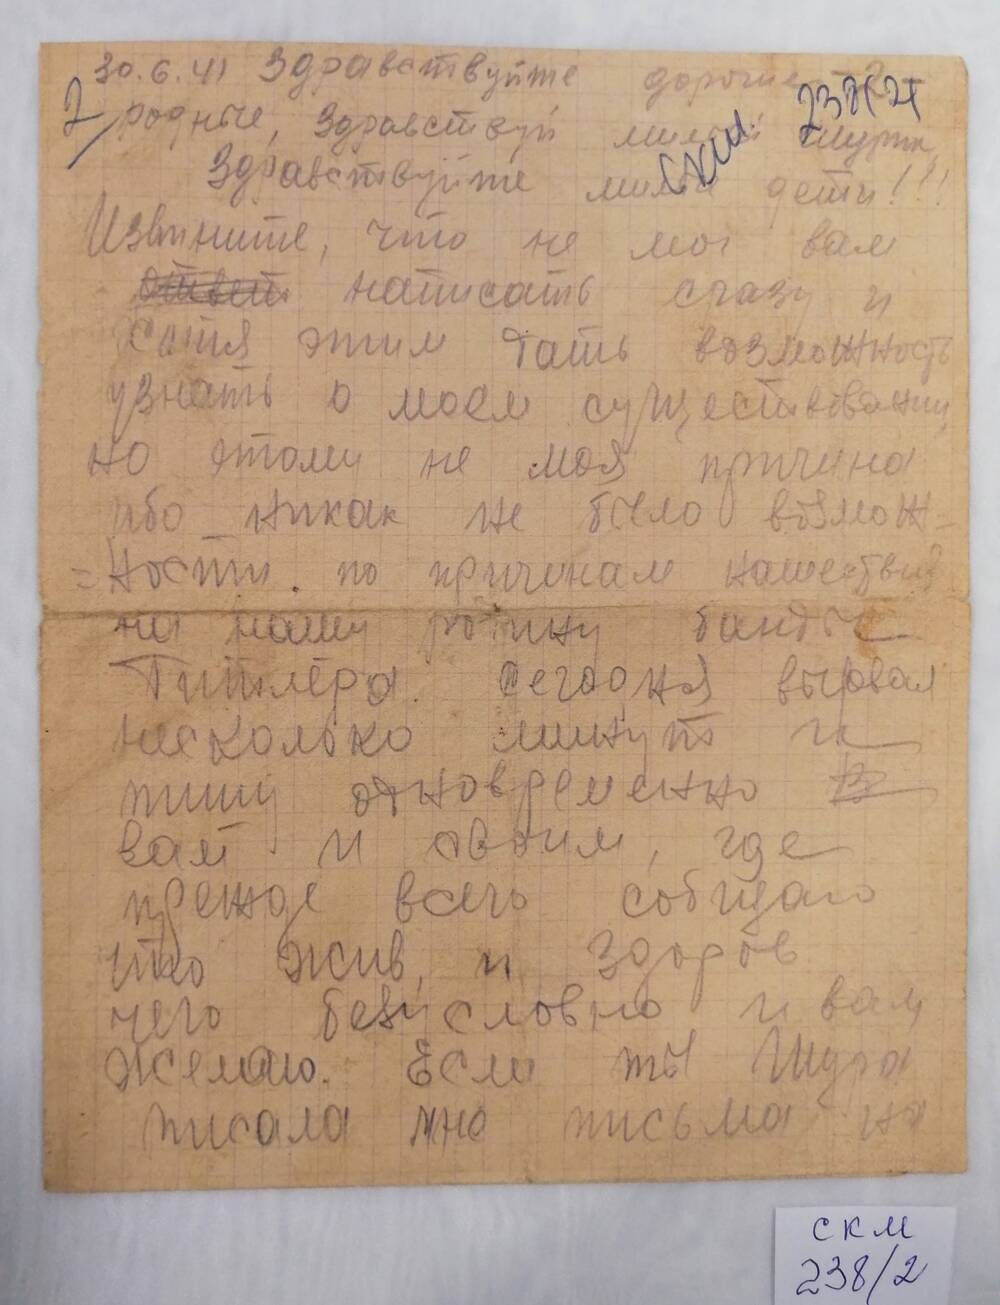 30.6.41 Здравствуйте дорогие
2 родные, Здравствуй милый Шурик 238/2
скм
Здравствуйте милые дети!!!
Извините, что не мог вам
ответ написать сразу и
этим дать возможность
узнать о моем существовании,
но этому не моя причина
ибо никак не было возмож-
=ности. по причинам нашествия
на нашу родину банды
Гитлера. Сегодня вырвал
несколько минут и
пишу одновременно
вам и своим, где
прежде всего собщаю
что жив, и здоров.
чего безусловно и вам
желаю. Если ты Шура
писала мне письма на
СКМ
238/2